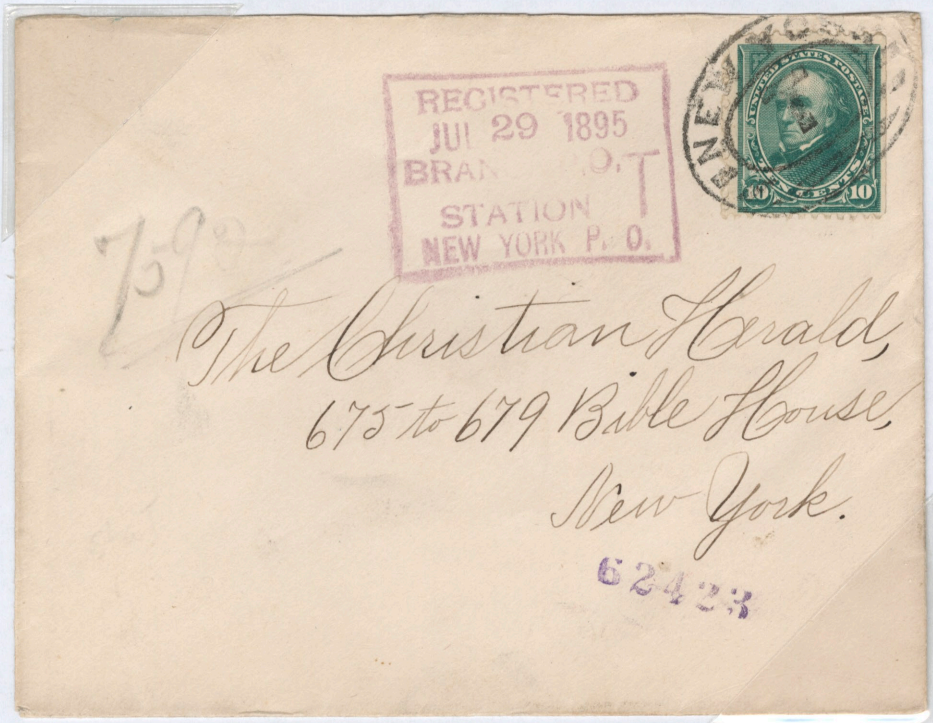 REGISTERED
JUL 29 1895
BRANCH P.O. T
STATION
NEW YORK P. O.
NEW YORK
UNITED STATES POSTAGE
TEN CENTS
10 10
759
The Christian Herald,
675 to 679 Bible House,
New York.
62423